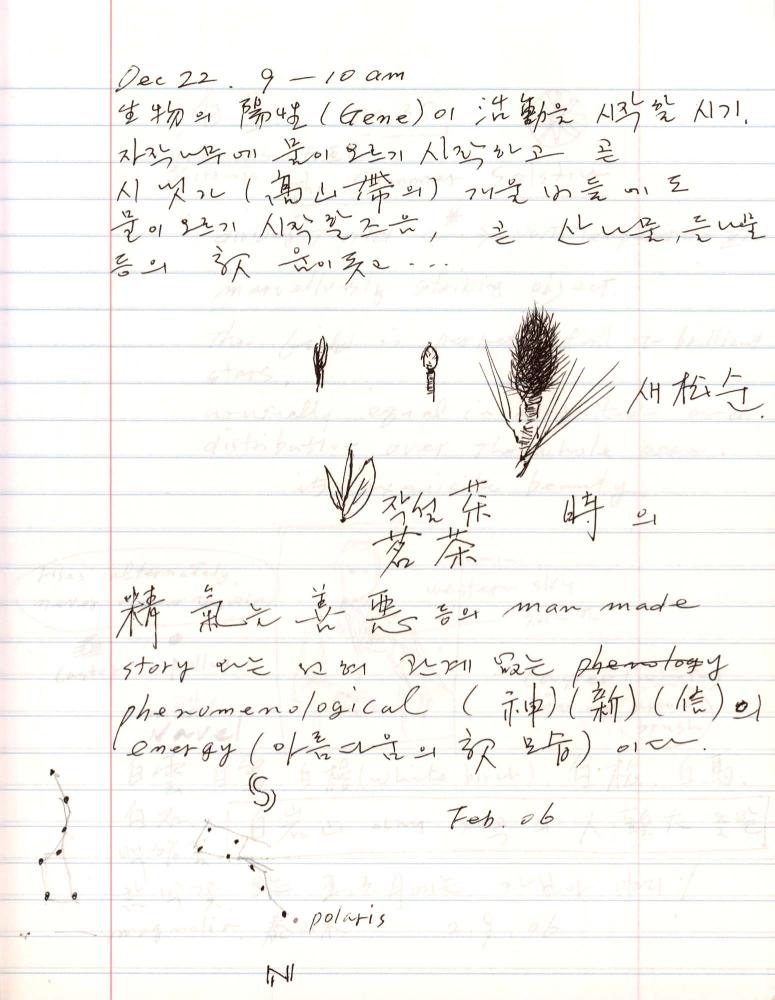 Dec 22. 9 – 10 am
生物의 陽性 (Gene)이 活動을 시작할 시기.
자작나무에 물이 오르기 시작하고 곧
시냇가 (高山帶의) 개울 버들에도
물이 오르기 시작할 즈음, 곧 산나물, 들나물
등의 첫 움이 돋고 ...
새 松순.
작설 茶 時의
茗茶
精氣는 善惡 등의 man made
story 와는 전혀 관계 없는 phenology
phenomenological (神)(新)(信)의
energy (아름다움의 첫 모습) 이다.
S
Feb. 06
polaris
N